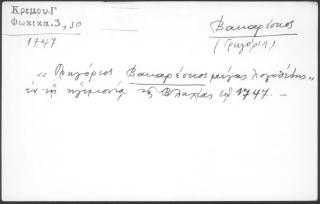 Κρεμου.Γ
Φωκικα.3, 30
1747
Βακαρέσκος
(Γρηγόριος)
« Γρηγόριος Βακαρέσκος μέγας λογοθέτης»
ἐν τῇ ἡγεμονίᾳ τῆς Βλαχίας τῷ 1747. —